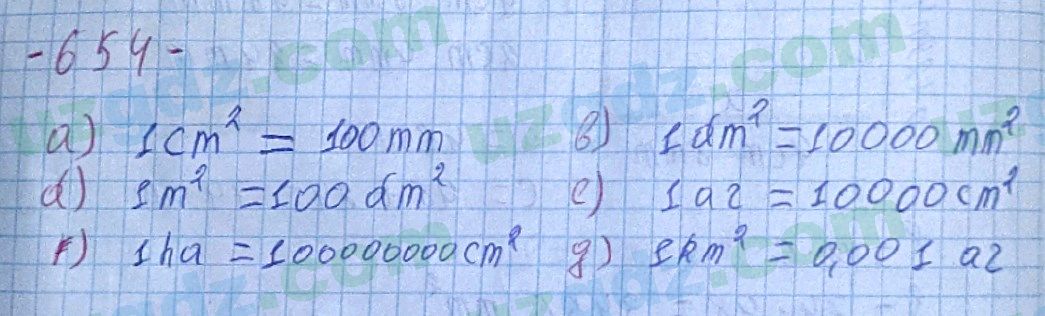 -654-
a) 1cm² = 100mm b) 1dm² = 10000mm²
d) 1m² = 100dm² e) 1ar = 10000cm²
f) 1ha = 100000000cm² g) 1km² = 0,001 ar
uzgdz.com